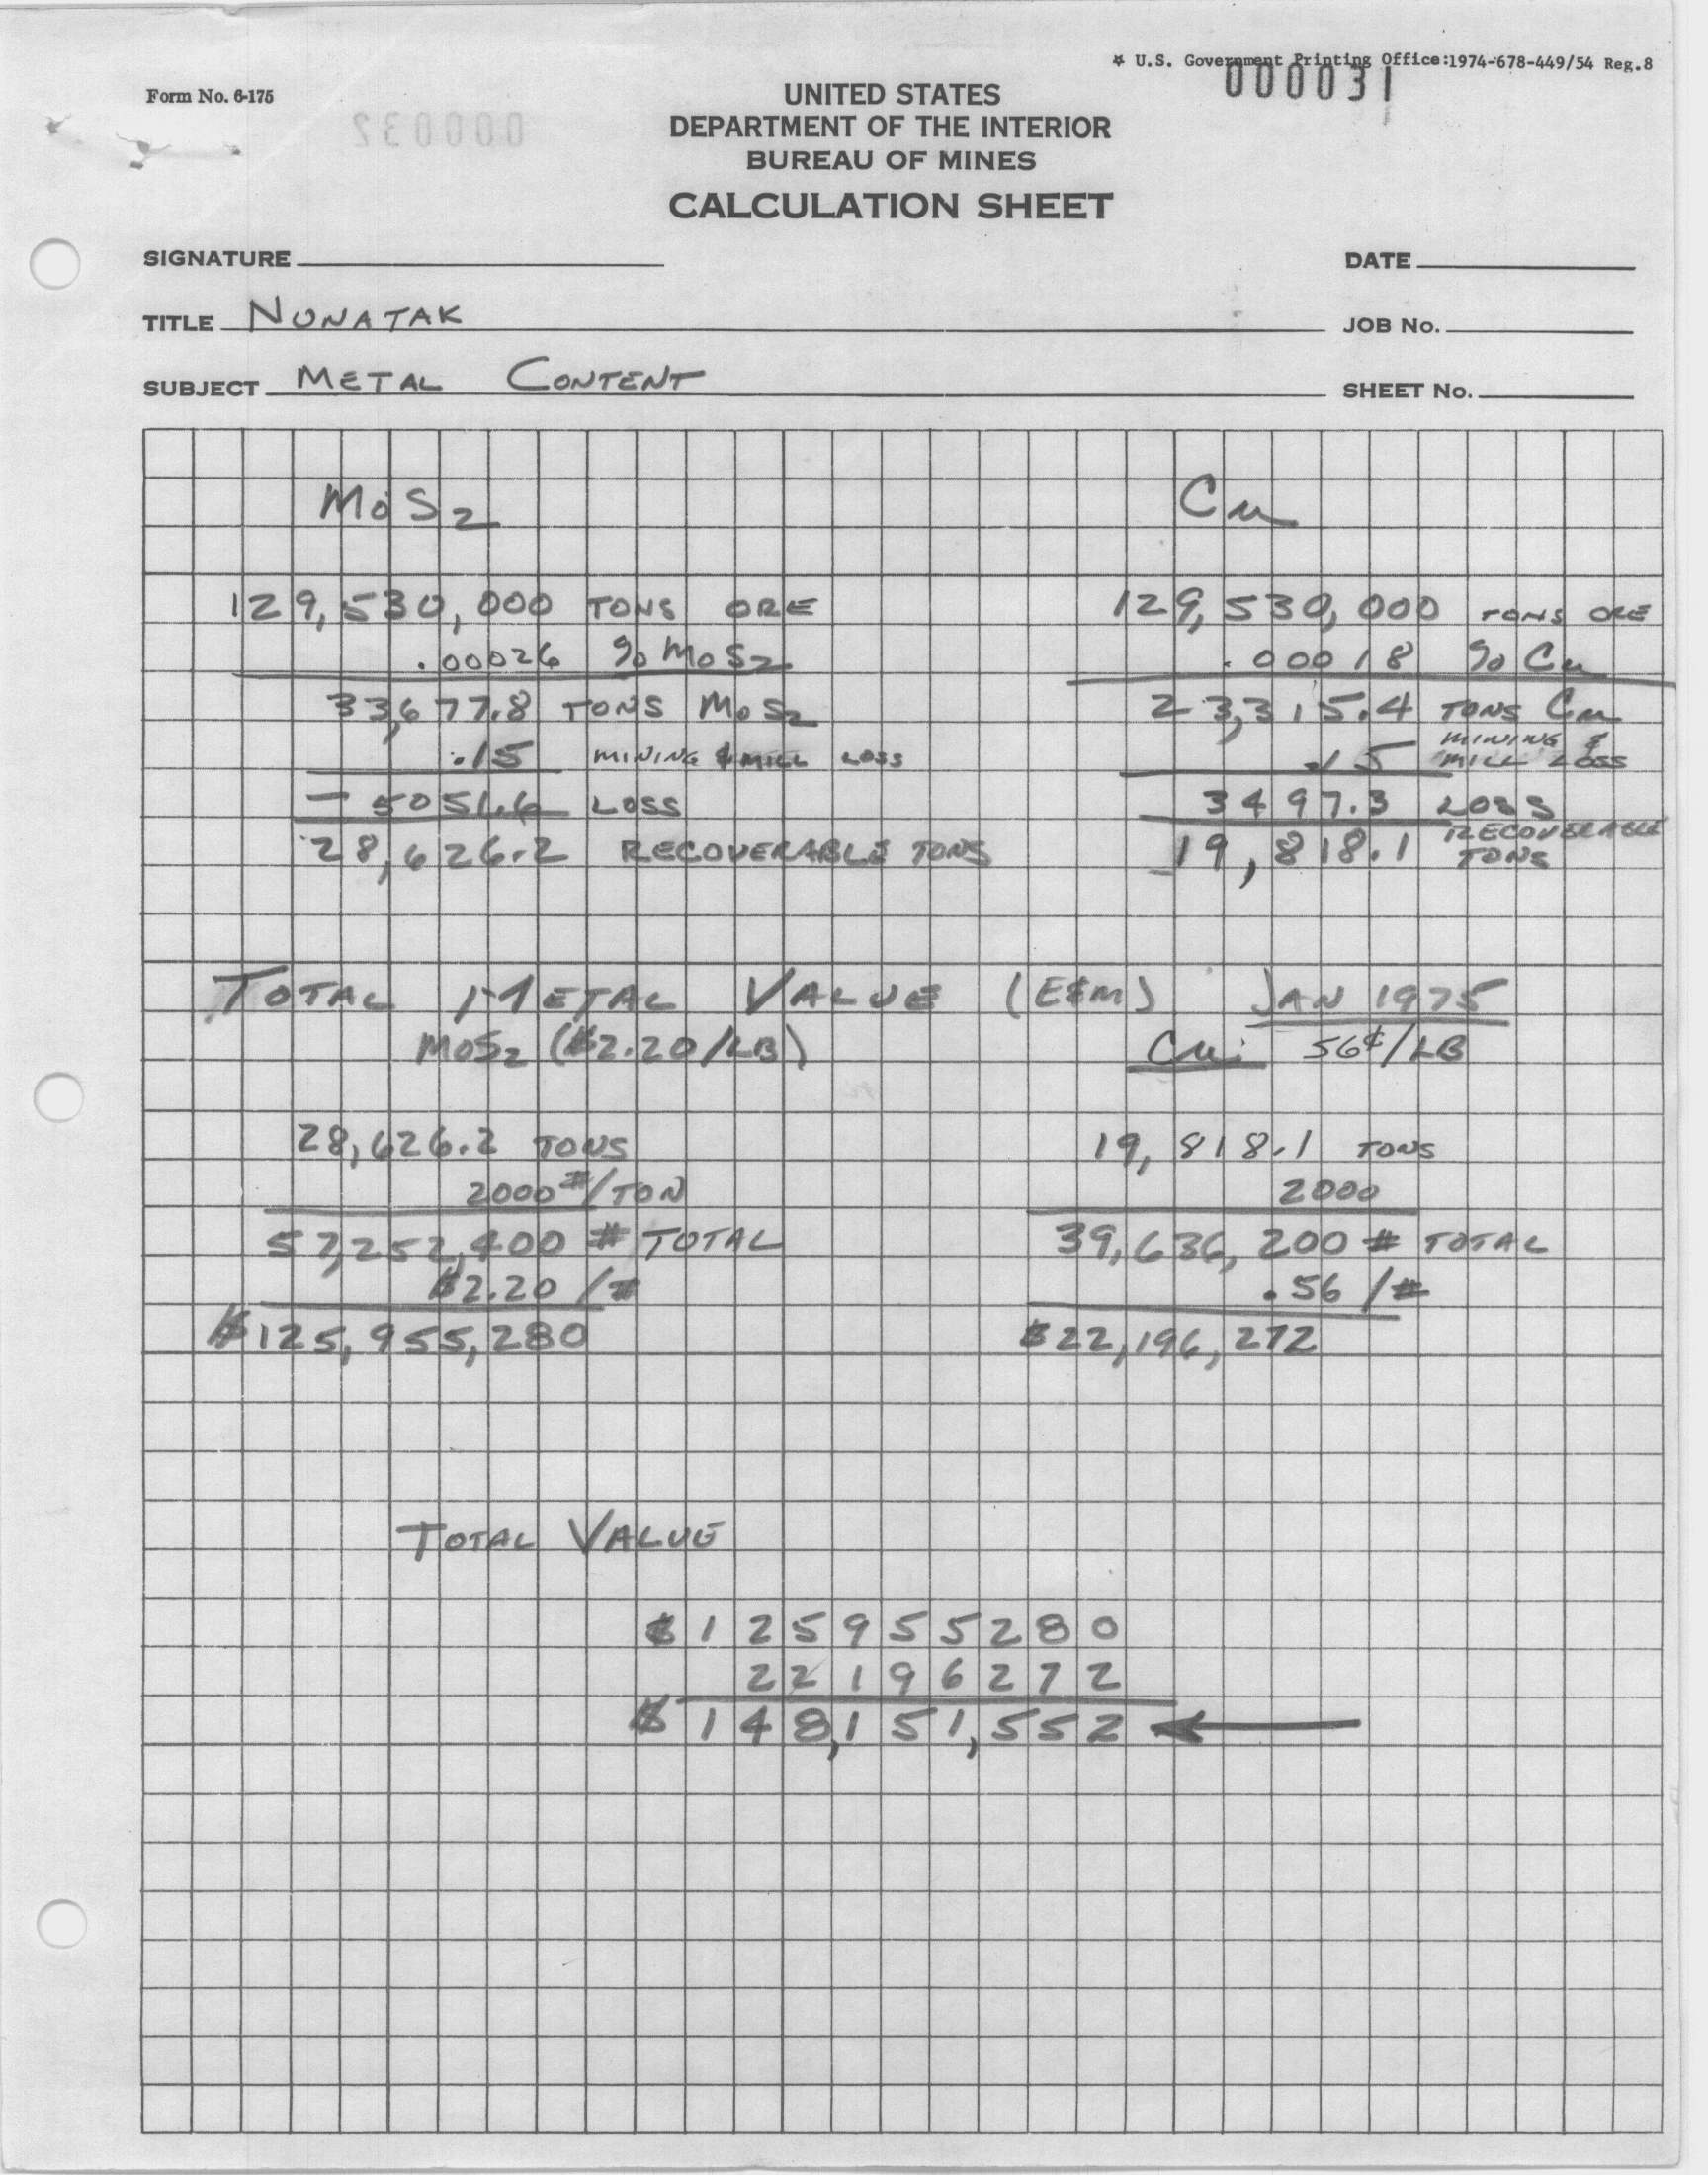 * U.S. Government Printing Office:1974-678-449/54 Reg.8
000031
Form No. 6-175
000032
UNITED STATES
DEPARTMENT OF THE INTERIOR
BUREAU OF MINES
CALCULATION SHEET
SIGNATURE
DATE
TITLE NUNATAK
JOB No.
SUBJECT METAL CONTENT
SHEET No.
MoS2
129,530,000 TONS ORE
.00026 % MoS2
33,677.8 TONS MoS2
.15 MINING & MILL LOSS
- 5051.6 LOSS
28,626.2 RECOVERABLE TONS
Cu
129,530,000 TONS ORE
.00018 % Cu
23,315.4 TONS Cu
.15 MINING & MILL LOSS
3497.3 LOSS
19,818.1 RECOVERABLE TONS
TOTAL METAL VALUE (E&M) JAN 1975
MoS2 ($2.20/LB)
28,626.2 TONS
2000#/TON
57,252,400 # TOTAL
$2.20 /#
$125,955,280
Cu: 56¢/LB
19,818.1 TONS
2000
39,636,200 # TOTAL
.56 /#
$22,196,272
TOTAL VALUE
$125955280
22196272
$148,151,552